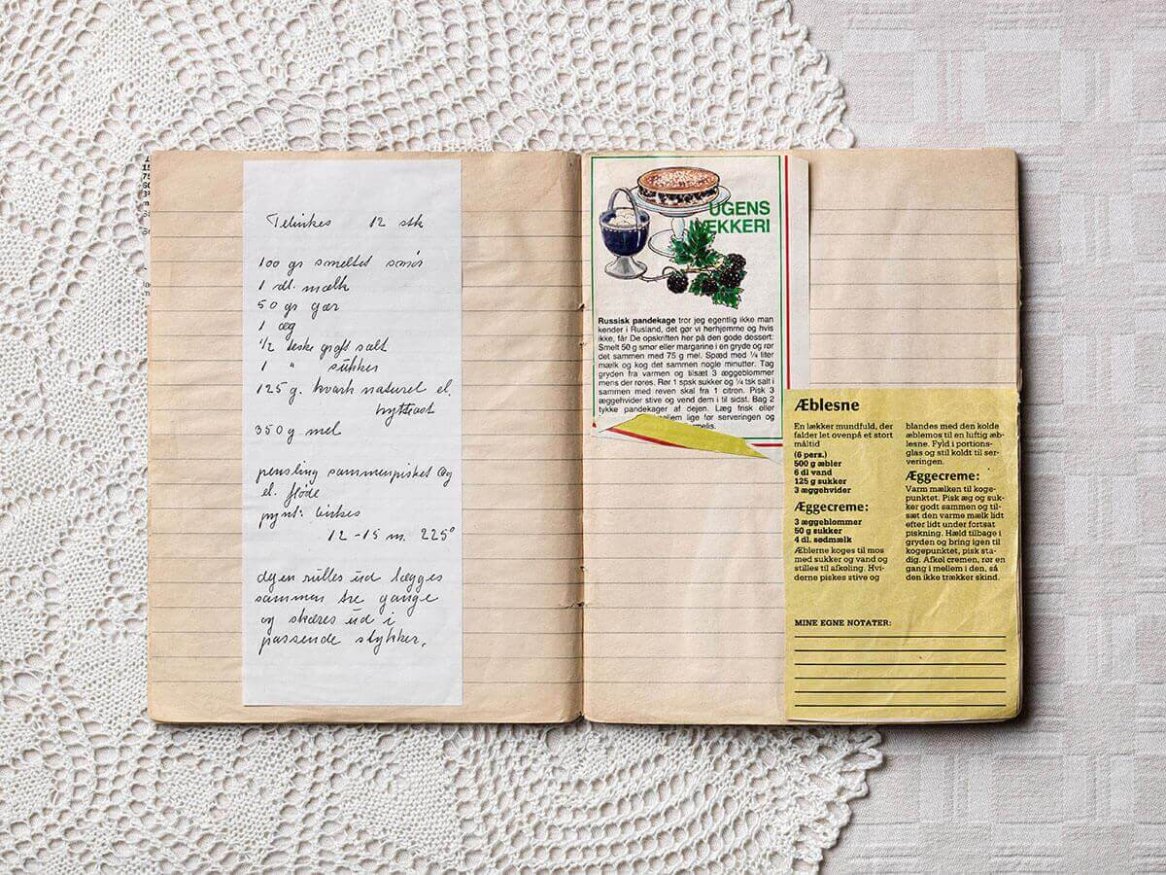 Tebirkes 12 stk
100 gr smeltet smør
1 dl. mælk
50 gr gær
1 æg
1/2 teske groft salt
1 " sukker
125 g. kvark naturel el.
hytteost
350 g mel
pensling sammenpisket æg
el. fløde
pynt: birkes
12-15 m. 225°
dejen rulles ud lægges
sammen tre gange
og skæres ud i
passende stykker.
UGENS
LÆKKERI
Russisk pandekage tror jeg egentlig ikke man
kender i Rusland, det gør vi herhjemme og hvis
ikke, får De opskriften her på den gode dessert:
Smelt 50 g smør eller margarine i en gryde og rør
det sammen med 75 g mel. Spæd med ¼ liter
mælk og kog det sammen nogle minutter. Tag
gryden fra varmen og tilsæt 3 æggeblommer
mens der røres. Rør 1 spsk sukker og ¼ tsk salt i
sammen med reven skal fra 1 citron. Pisk 3
æggehvider stive og vend dem i til sidst. Bag 2
tykke pandekager af dejen. Læg frisk eller
mellem lige før servering og
melis.
Æblesne
En lækker mundfuld, der
falder let ovenpå et stort
måltid
(6 pers.)
500 g æbler
6 dl vand
125 g sukker
3 æggehvider
Æggecreme:
3 æggeblommer
50 g sukker
4 dl. sødmælk
Æblerne koges til mos
med sukker og vand og
stilles til afkøling. Hvi-
derne piskes stive og
blandes med den kolde
æblemos til en luftig æb-
lesne. Fyld i portions-
glas og stil koldt til ser-
veringen.
Æggecreme:
Varm mælken til koge-
punktet. Pisk æg og suk-
ker godt sammen og til-
sæt den varme mælk lidt
efter lidt under fortsat
piskning. Hæld tilbage i
gryden og bring igen til
kogepunktet, pisk sta-
dig. Afkøl cremen, rør en
gang i mellem i den, så
den ikke trækker skind.
MINE EGNE NOTATER: